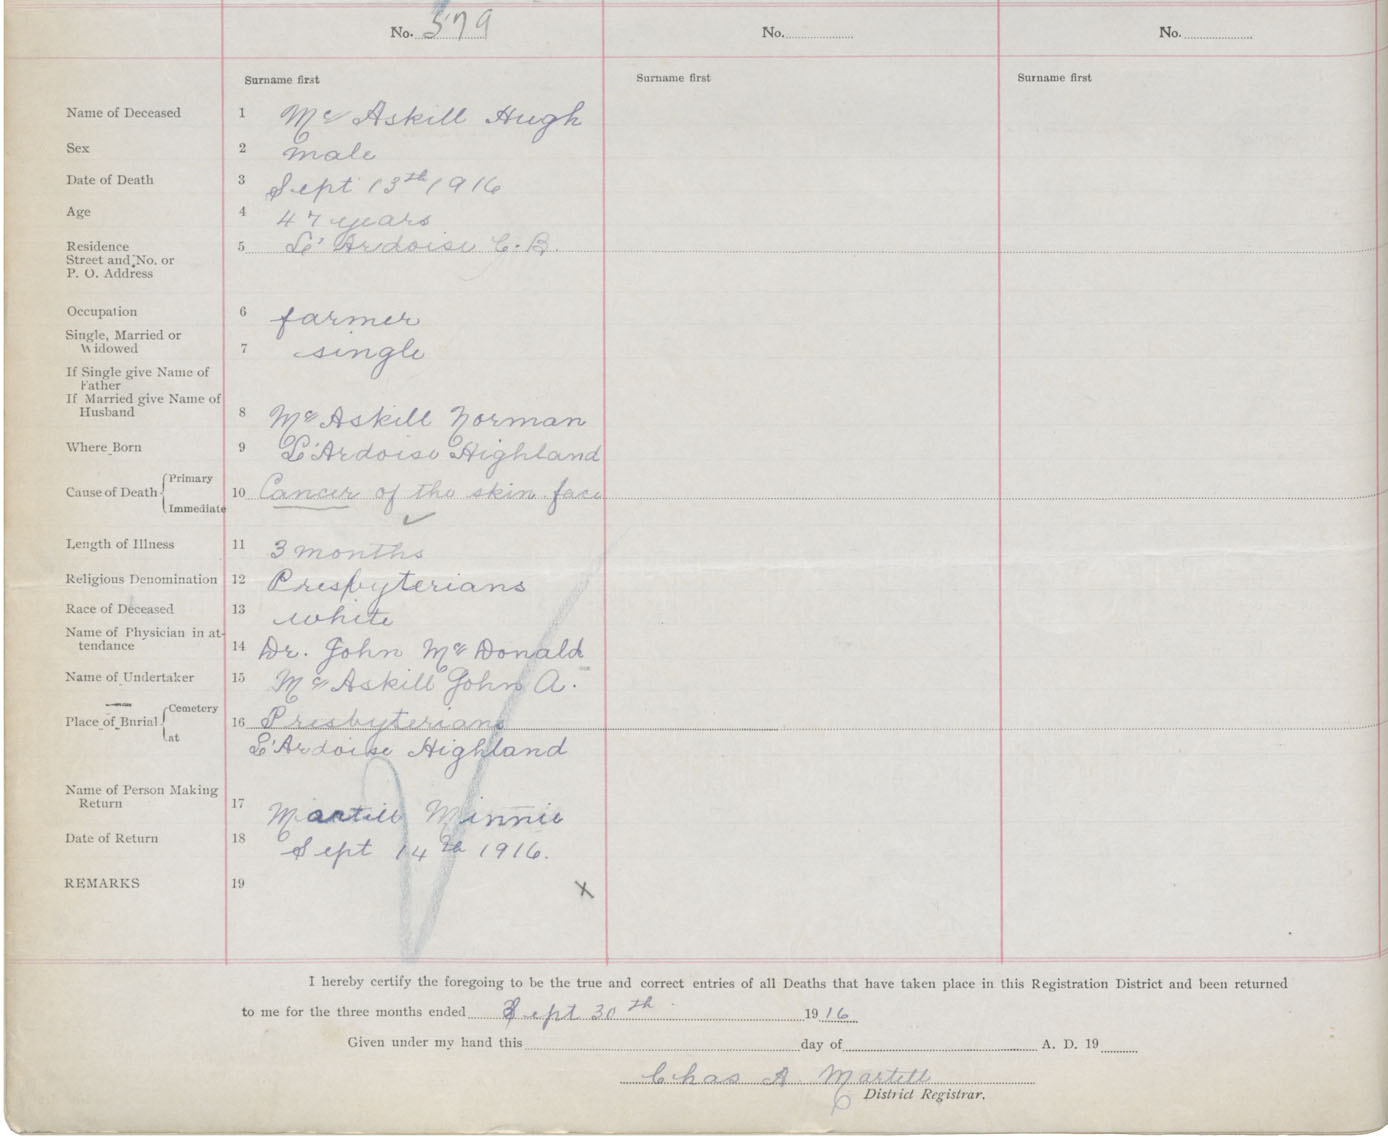 No. 579 No. No.
Surname first Surname first Surname first
Name of Deceased 1 Mc Askill Hugh
Sex 2 male
Date of Death 3 Sept 13th 1916
Age 4 47 years
Residence 5 L'Ardoise C. B.
Street and No. or
P. O. Address
Occupation 6 farmer
Single, Married or
Widowed 7 single
If Single give Name of
Father
If Married give Name of
Husband 8 Mc Askill Norman
Where Born 9 L'Ardoise Highland
Cause of Death { Primary
10 Cancer of the skin face
Immediate
Length of Illness 11 3 months
Religious Denomination 12 Presbyterians
Race of Deceased 13 white
Name of Physician in at-
tendance 14 Dr. John Mc Donald
Name of Undertaker 15 Mc Askill John A.
Place of Burial { Cemetery
16 Presbyterians
at L'Ardoise Highland
Name of Person Making
Return 17 Martell Minnie
Date of Return 18 Sept 14th 1916.
REMARKS 19 x
I hereby certify the foregoing to be the true and correct entries of all Deaths that have taken place in this Registration District and been returned
to me for the three months ended Sept 30th 1916
Given under my hand this day of A. D. 19
Chas A. Martell
District Registrar.